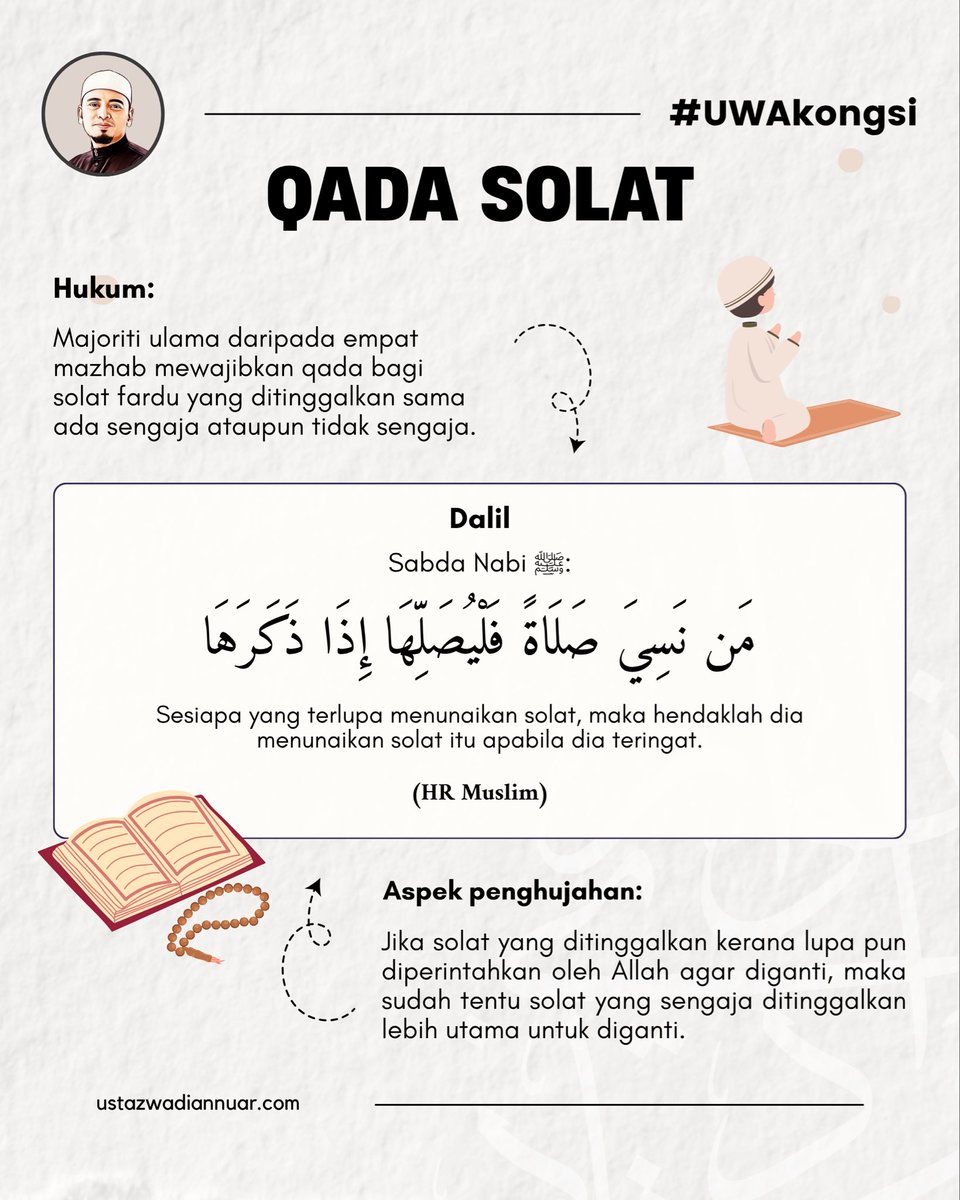 #UWAkongsi
QADA SOLAT
Hukum:
Majoriti ulama daripada empat
mazhab mewajibkan qada bagi
solat fardu yang ditinggalkan sama
ada sengaja ataupun tidak sengaja.
Dalil
Sabda Nabi ﷺ:
مَن نَسِيَ صَلَاةً فَلْيُصَلِّهَا إِذَا ذَكَرَهَا
Sesiapa yang terlupa menunaikan solat, maka hendaklah dia
menunaikan solat itu apabila dia teringat.
(HR Muslim)
Aspek penghujahan:
Jika solat yang ditinggalkan kerana lupa pun
diperintahkan oleh Allah agar diganti, maka
sudah tentu solat yang sengaja ditinggalkan
lebih utama untuk diganti.
ustazwadiannuar.com